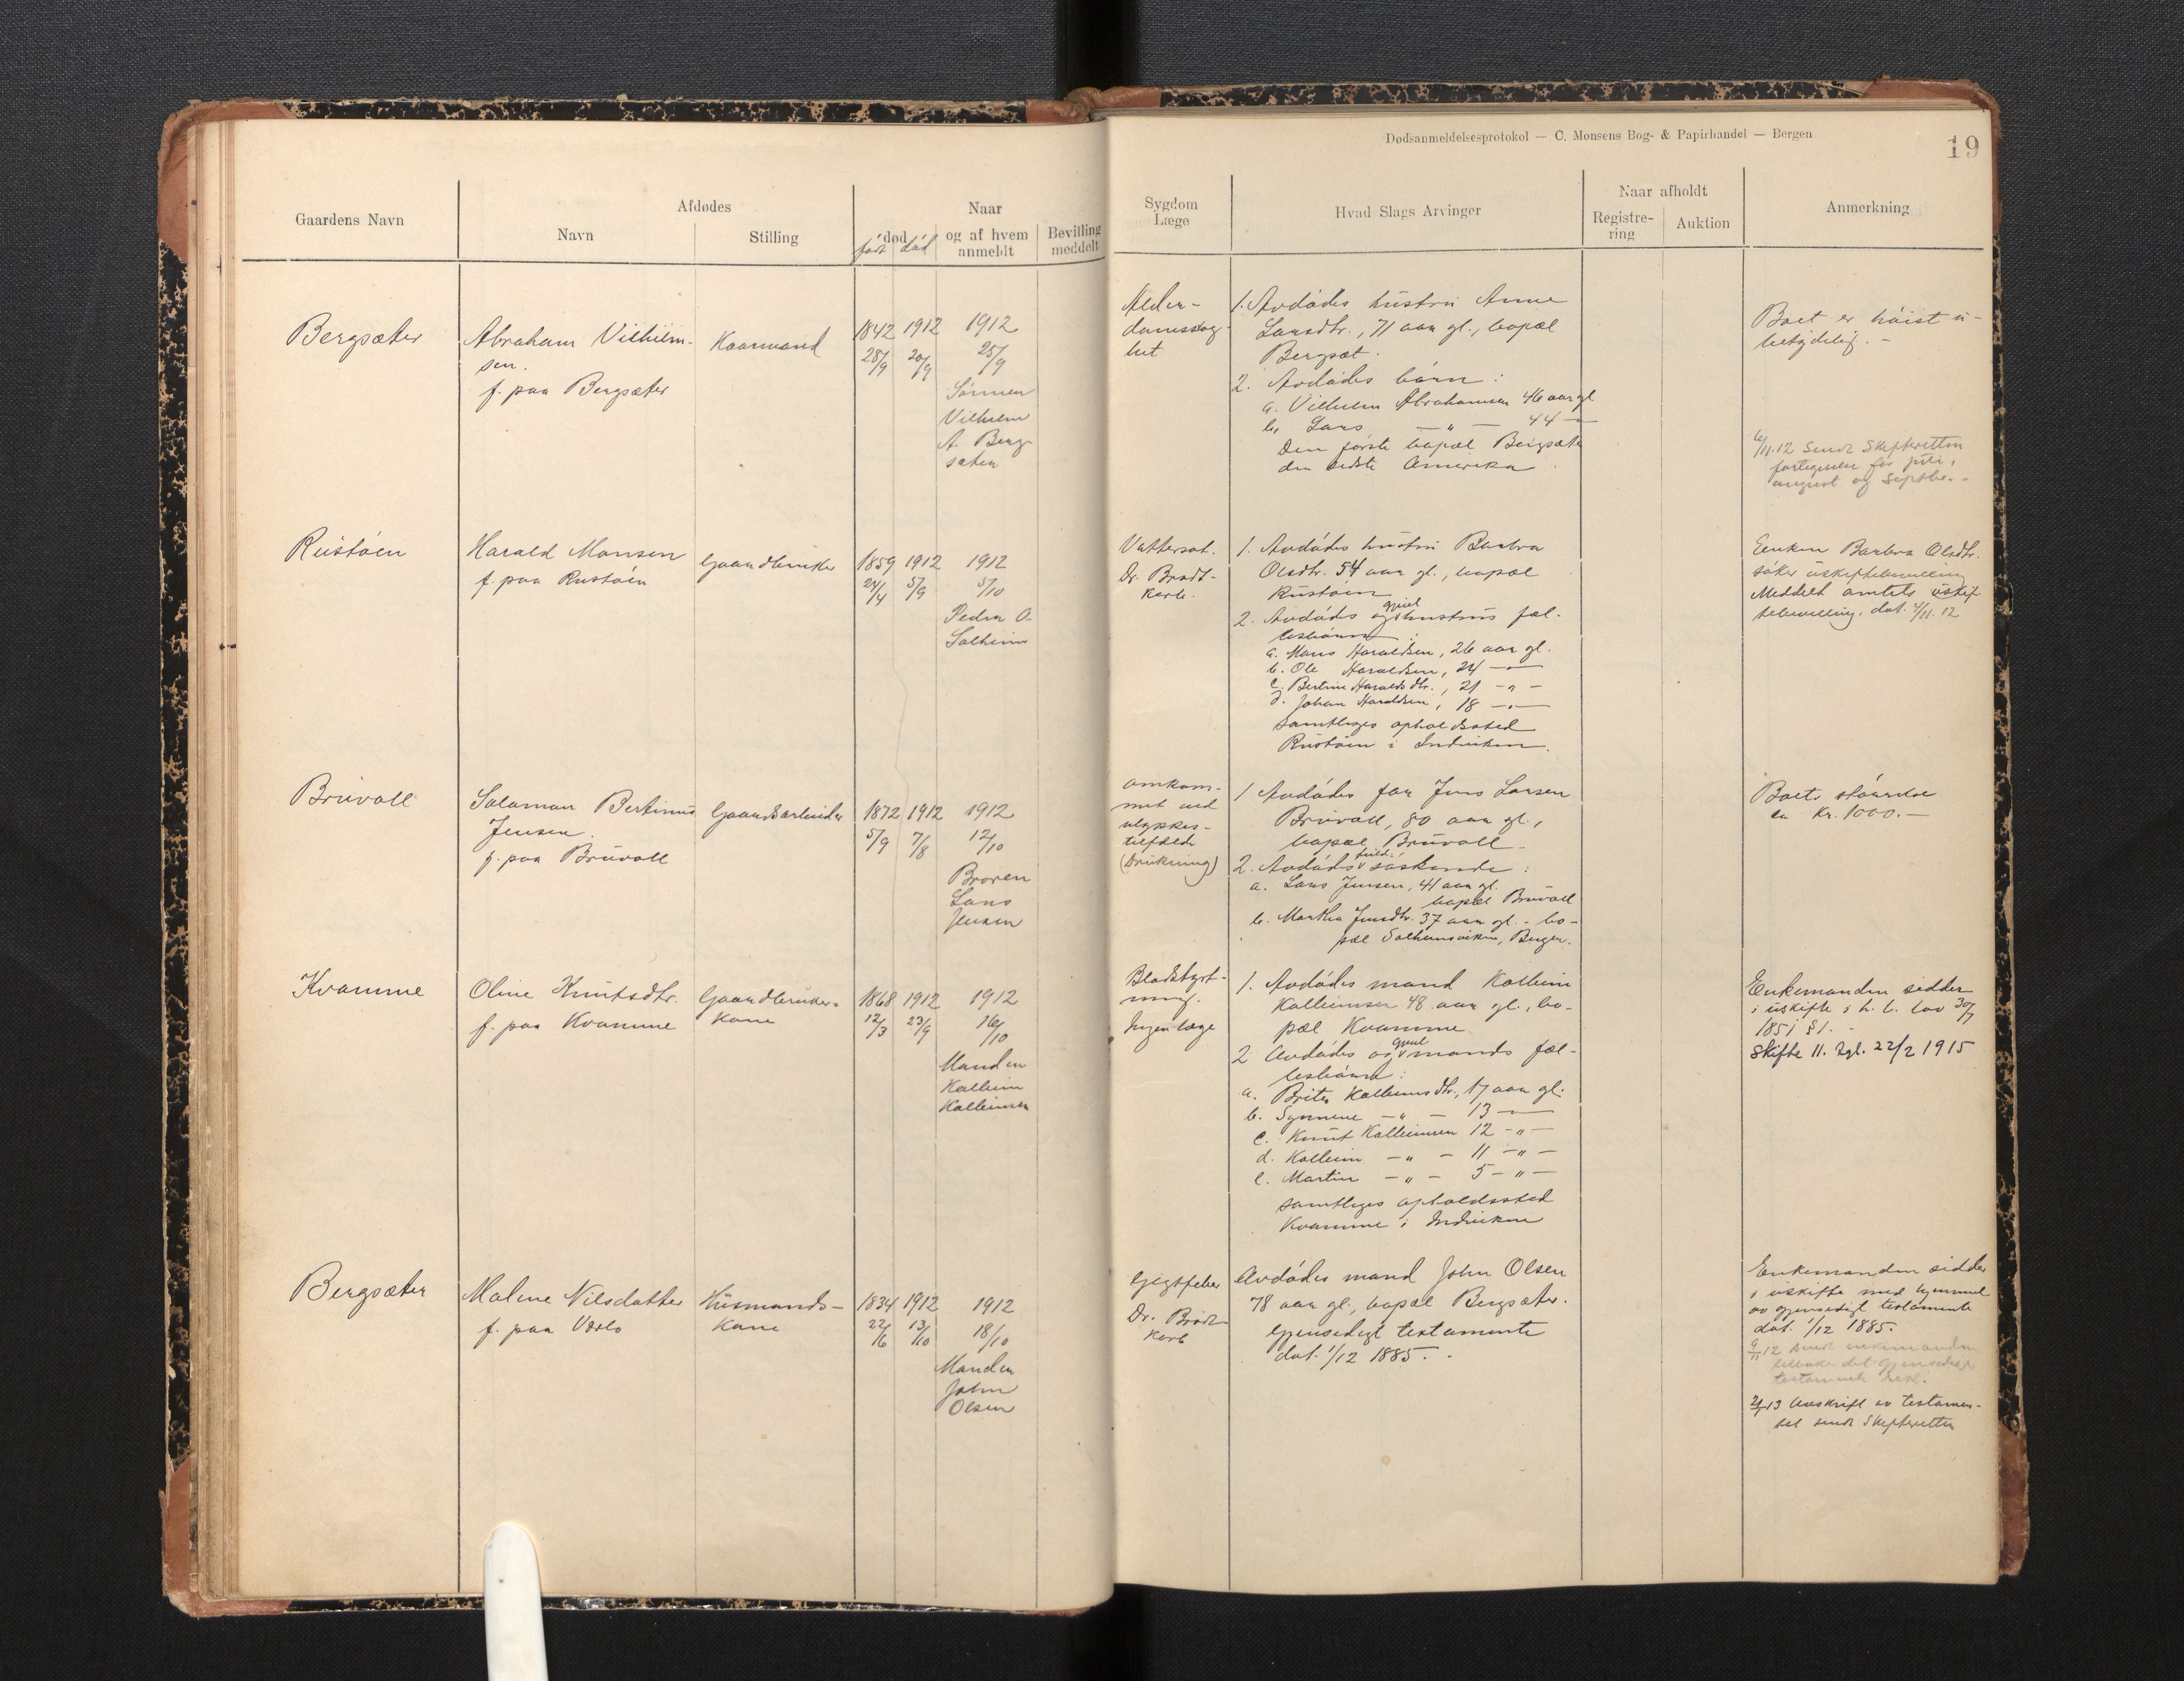 Dødsanmeldelsesprotokol — C. Monsens Bog- & Papirhandel — Bergen
19
Gaardens Navn
Afdødes
Navn
Stilling
Naar
død
født død
og af hvem
anmeldt
Bevilling
meddelt
Sygdom
Læge
Hvad Slags Arvinger
Naar afholdt
Registre-
ring
Auktion
Anmerkning
Bergsæter
Abraham Vilhelm-
sen.
f. paa Bergsæter
Kaarmand
1842 1912 1912
28/9 20/9 25/9
Sønnen
Vilhelm
A. Berg-
sæter
Alder-
domsslag-
het
1. Avdødes hustru Anne
Larsdtr., 71 aar gl., bopæl
Bergsæt.
2. Avdødes børn:
a. Vilhelm Abrahamsen 46 aar gl
b. Lars — " — 44 —
Den første bopæl Bergsæter
den sidste Amerika
Boet er høist u-
betydelig. -
6/11.12 Sendt Skifteretten
fortegnelse for juli,
august og Septbr. -
Rustøen
Harald Monsen
f. paa Rustøen
Gaardbruker
1859 1912 1912
24/4 5/9 5/10
Peder O.
Solheim
Vattersot.
Dr. Brodt-
korb.
1. Avdødes hustru Barbra
Olsdtr. 54 aar gl., bopæl
Rustøen
2. Avdødes og gjenl. hustrus fæl-
lesbørn:
a. Mons Haraldsen, 26 aar gl.
b. Ole Haraldsen, 24 —
c. Bertine Haralds dtr., 21 - " -
d. Johan Haraldsen, 18 — " —
samtliges opholdssted
Rustøen i Indviken.
Enken Barbra Olsdtr.
søker uskiftebevilling
Meddelt amtets uskif-
tebevilling. dat. 4/11.12
Bruvoll
Salamon Bertinus
Jensen.
f. paa Bruvoll
Gaardsarbeider
1872 1912 1912
5/9 7/8 12/10
Broren
Lars
Jensen
omkom-
met ved
ulykkes-
tilfælde
(Drukning)
1 Avdødes far Jens Larsen
Bruvoll, 80 aar gl.,
bopæl Bruvoll.
2. Avdødes fuld. søskende:
a. Lars Jensen, 41 aar gl.
bopæl Bruvoll
b. Martha Jensdtr. 37 aar gl. - bo-
pæl Solheimsviken, Bergen.
Boets størrelse
ca Kr. 1000. —
Kvamme
Oline Knutsdtr.
f. paa Kvamme
Gaardbruker-
kone
1868 1912 1912
12/3 23/9 16/10
Manden
Kolbein
Kolbeinsen
Blodstyrt-
ning.
Ingen læge
1. Avdødes mand Kolbein
Kolbeinsen 48 aar gl., bo-
pæl Kvamme
2 Avdødes og gjenl. mands fæl-
lesbørn:
a. Brite Kolbeins dtr., 17 aar gl.
b. Synneve — " — 13 —
c. Knut Kolbeinsen 12 - " —
d. Kolbein — " — 11 — " —
e. Martin — " — 5 - " —
samtliges opholdssted
Kvamme i Indviken
Enkemanden sidder
i uskifte i h. t. lov 30/7
1851 §1. -
Skifte 11. Rgl. 22/2 1915
Bergsæter
Malene Nilsdatter
f. paa
Husmands-
kone
1834 1912 1912
22/6 13/10 18/10
Manden
John
Olsen
Gigtfeber
Dr. Brodt-
korb
Avdødes mand John Olsen
78 aar gl., bopæl Bergsæter.
Gjensidigt testamente
dat. 1/12 1885. -
Enkemanden sidder
i uskifte med hjemmel
av gjensidigt testamente
dat. 1/12 1885.
9/11 12 sendt enkemanden
det gjensidige
testamente
13 Avskrift av testamen-
tet sendt Skifteretten